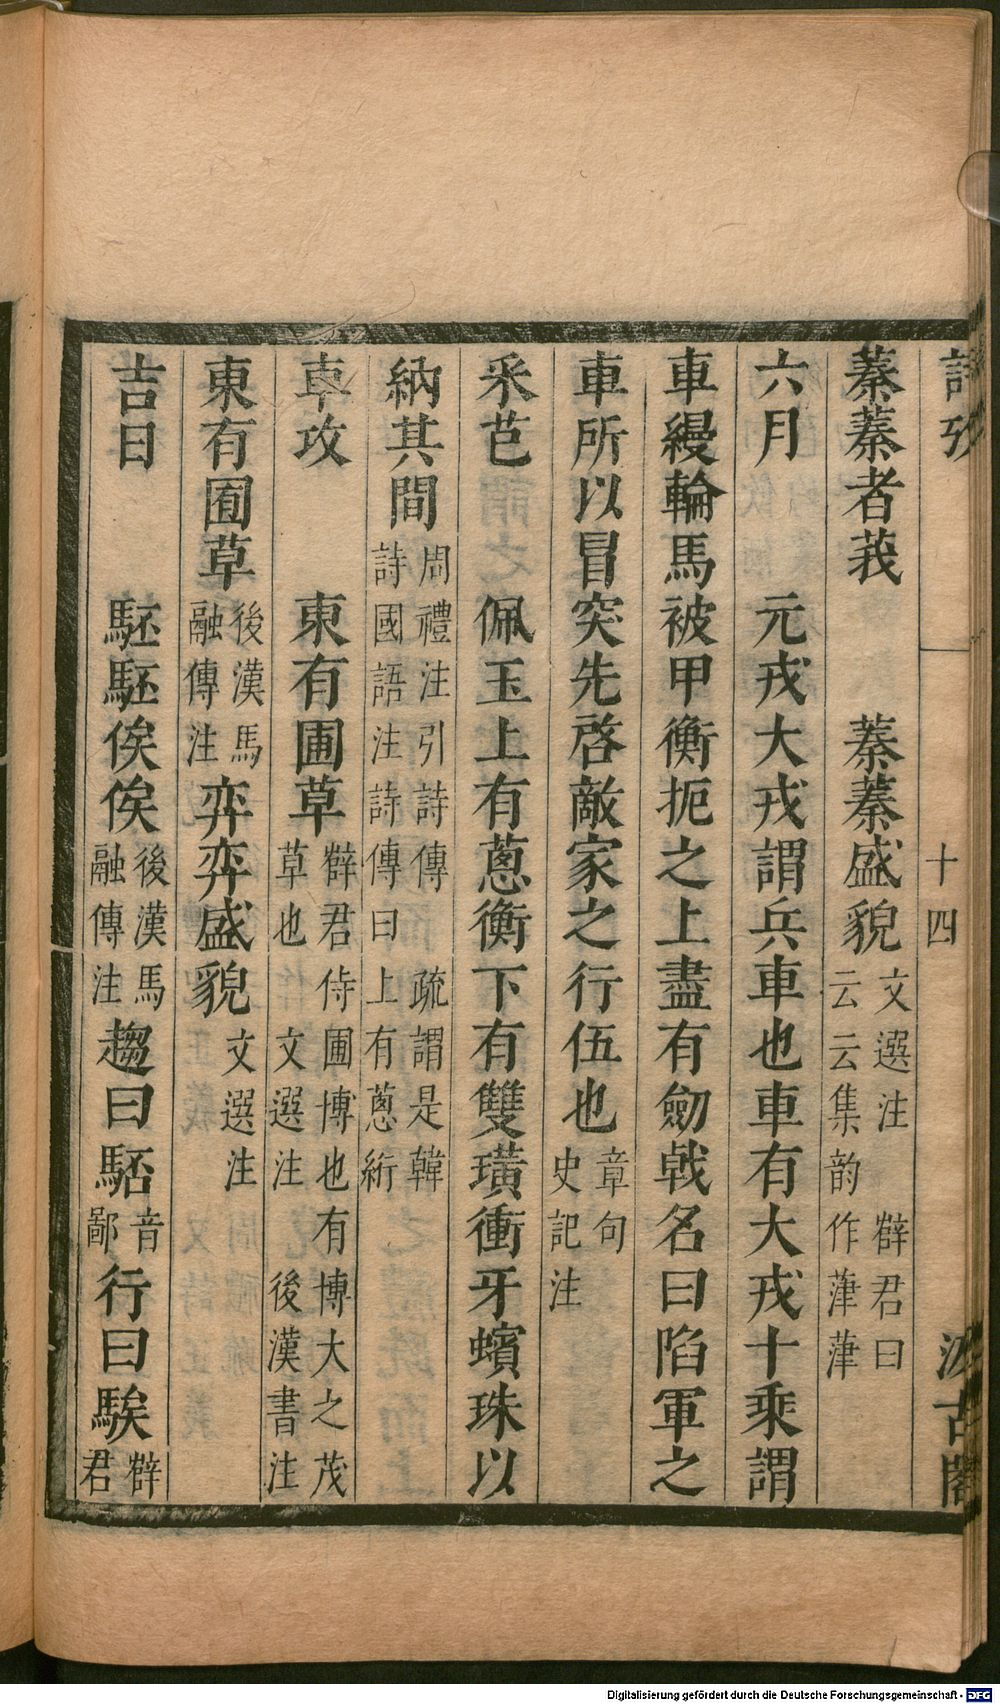 詩攷
十四
汲古閣
蓁蓁者莪　蓁蓁盛貌文選注　薛君曰云云集韵作䔖䔖
六月　元戎大戎謂兵車也車有大戎十乘謂
車縵輪馬被甲衡扼之上盡有劒戟名曰陷軍之
車所以冒突先啓敵家之行伍也章句史記注
采芑　佩玉上有蔥衡下有雙璜衝牙蠙珠以
納其間周禮注引詩傳疏謂是韓詩國語注詩傳曰上有蔥絎
車攻　東有圃草薛君侍圃博也有博大之茂草也文選注後漢書注
東有囿草後漢馬融傳注弈弈盛貌文選注
吉日　駓駓俟俟後漢馬融傳注趨曰駓音鄙行曰騃薛君
Digitalisierung gefördert durch die Deutsche Forschungsgemeinschaft - DFG